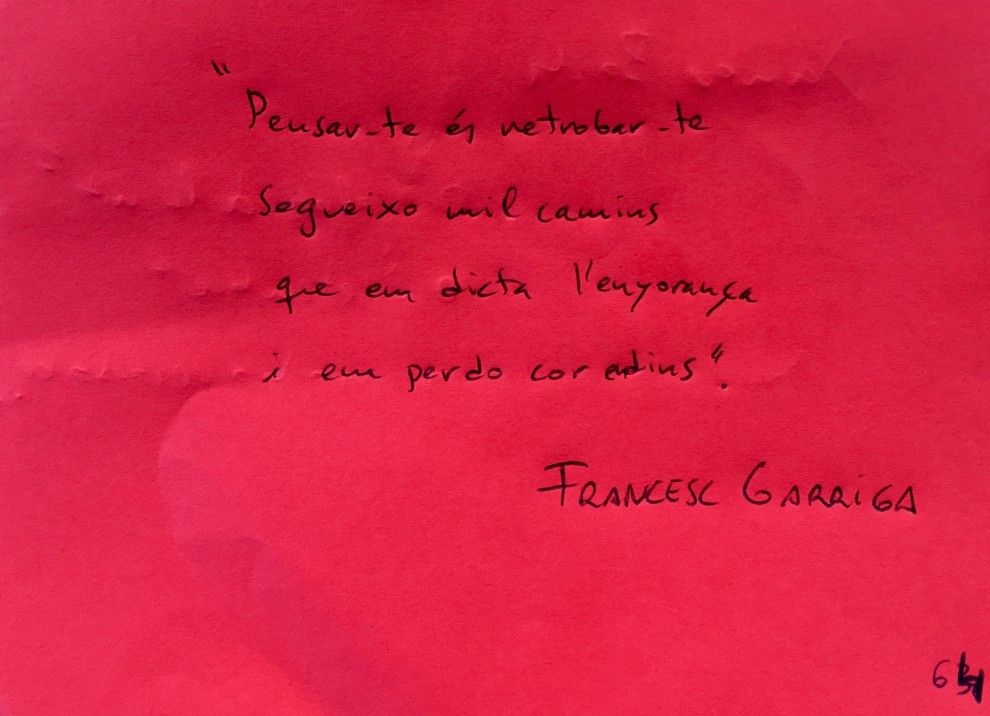 "Pensar-te és retrobar-te
Segueixo mil camins
que em dicta l'enyorança
i em perdo cor endins".
FRANCESC GARRIGA
6